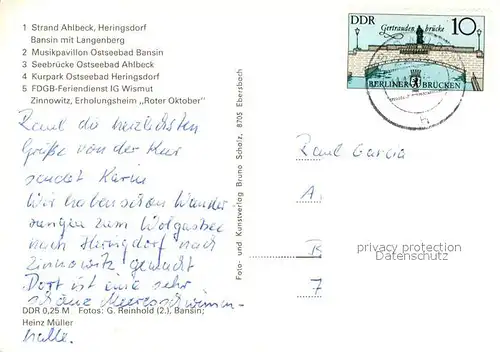 1 Strand Ahlbeck, Heringsdorf
Bansin mit Langenberg
2 Musikpavillon Ostseebad Bansin
3 Seebrücke Ostseebad Ahlbeck
4 Kurpark Ostseebad Heringsdorf
5 FDGB-Feriendienst IG Wismut
Zinnowitz, Erholungsheim „Roter Oktober“
Raul die herzlichsten
Grüße von der Kur
sendet Karin
Wir haben schon Wander-
rungen zum Wolgastsee
nach Heringdorf nach
Zinnowitz gemacht
Dort ist eine sehr
schöne Meeresschwimm-
halle.
DDR 0,25 M Fotos: G. Reinhold (2.), Bansin;
Heinz Müller
Foto- und Kunstverlag Bruno Scholz, 8705 Ebersbach
DDR 10
Gertraudenbrücke
BERLINER BRÜCKEN
Raul Garcia
A.
R
7
privacy protection
Datenschutz